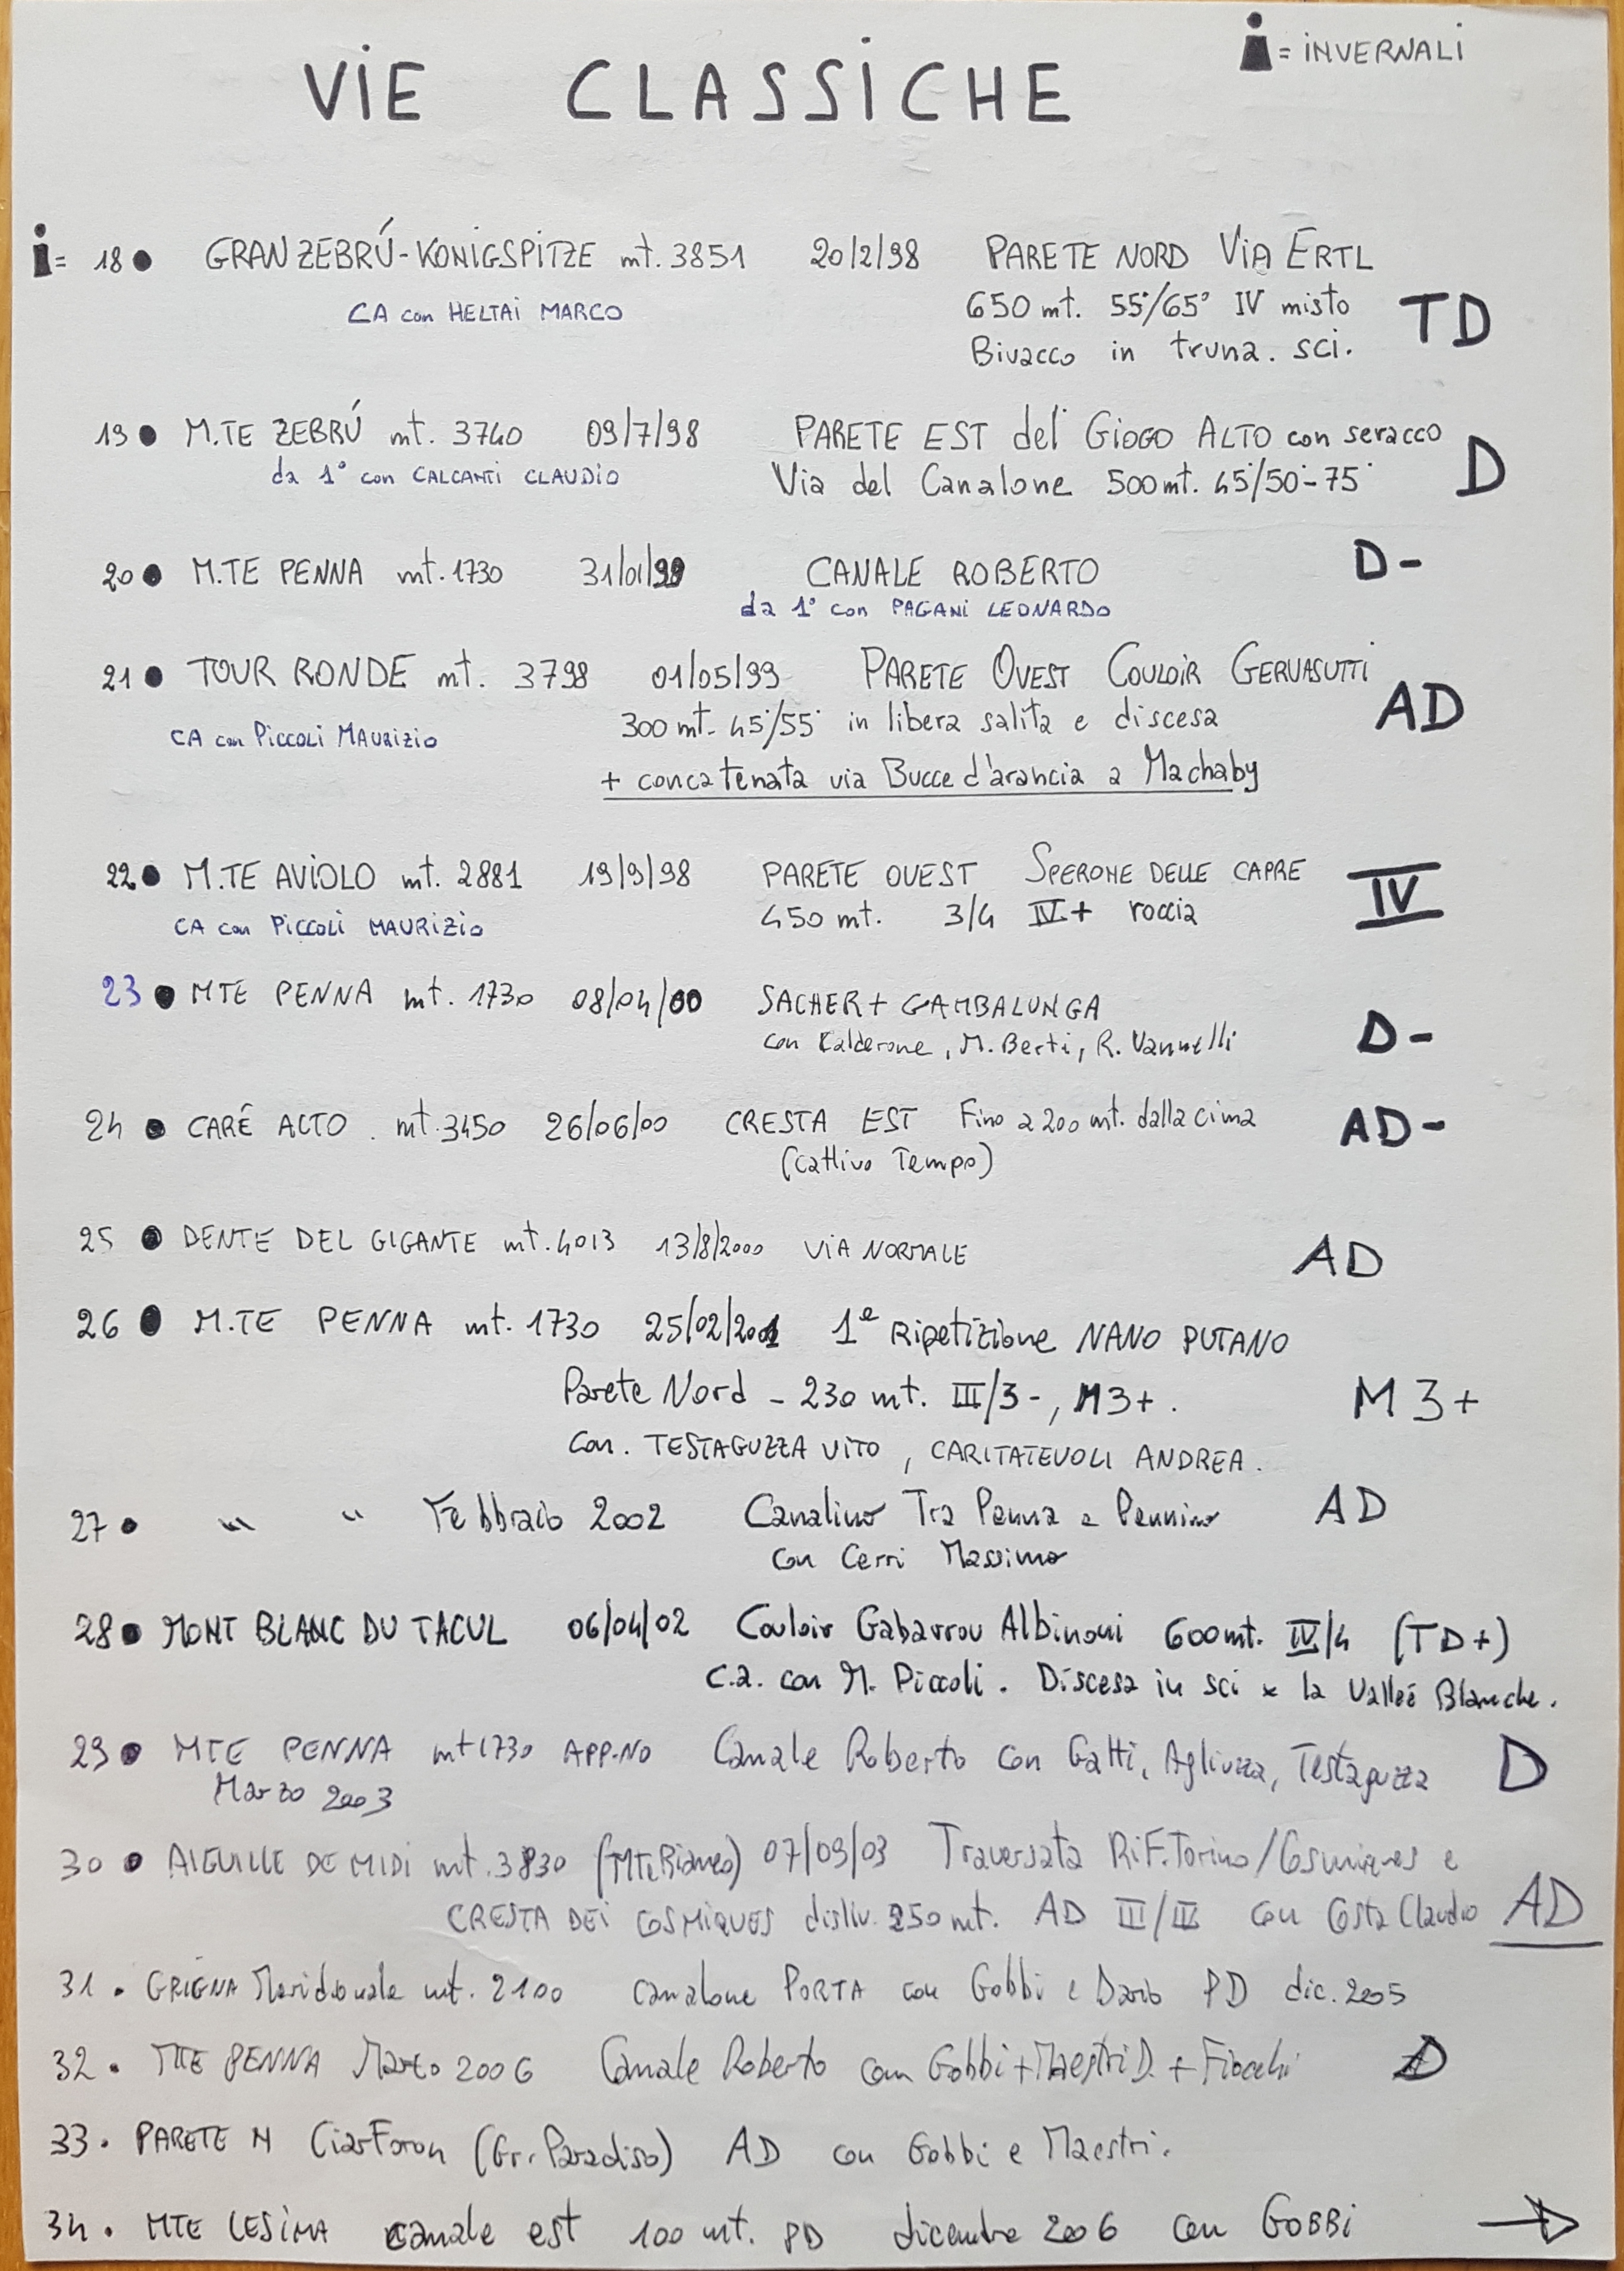 VIE CLASSICHE
i = INVERNALI
i = 18 ● GRAN ZEBRÚ - KONIGSPITZE mt. 3851 20/2/98 PARETE NORD VIA ERTL
CA con HELTAI MARCO 650 mt. 55°/65° IV misto TD
Bivacco in truna. sci.
19 ● M.TE ZEBRÚ mt. 3740 09/7/98 PARETE EST del GIOGO ALTO con seracco
da 1° con CALCANTI CLAUDIO Via del Canalone 500 mt. 45°/50°-75° D
20 ● M.TE PENNA mt. 1730 31/01/99 CANALE ROBERTO D-
da 1° con PAGANI LEONARDO
21 ● TOUR RONDE mt. 3798 01/05/99 PARETE OVEST COULOIR GERVASUTTI
CA con PICCOLI MAURIZIO 300 mt. 45°/55° in libera salita e discesa AD
+ concatenata via Bucce d'arancia a Machaby
22 ● M.TE AVIOLO mt. 2881 19/9/98 PARETE OVEST SPERONE DELLE CAPRE IV
CA con PICCOLI MAURIZIO 450 mt. 3/4 IV+ roccia
23 ● MTE PENNA mt. 1730 08/04/00 SACHER + GAMBALUNGA
con Kalderone, M. Berti, R. Vannelli D-
24 ● CARÉ ALTO. mt. 3450 26/06/00 CRESTA EST Fino a 200 mt. dalla cima AD-
(cattivo Tempo)
25 ● DENTE DEL GIGANTE mt. 4013 13/8/2000 VIA NORMALE AD
26 ● M.TE PENNA mt. 1730 25/02/2001 1ª Ripetizione NANO PUTANO
Parete Nord - 230 mt. III/3-, M3+. M3+
con. TESTAGUZZA VITO, CARITATEVOLI ANDREA.
27 ● " " Febbraio 2002 Canalino Tra Penna e Pennino AD
con Cerri Massimo
28 ● MONT BLANC DU TACUL 06/04/02 Couloir Gabarrou Albinoni 600 mt. IV/4 (TD+)
c.a. con M. Piccoli. Discesa in sci x la Valleé Blanche.
29 ● MTE PENNA mt 1730 APP.NO Canale Roberto con Gatti, Agliuzza, Testaguzza D
Marzo 2003
30 ● AIGUILLE DE MIDI mt. 3830 (MTE Bianco) 07/09/03 Traversata RIF. Torino/Cosmiques e
CRESTA DEI COSMIQUES disliv. 250 mt. AD III/IV con Costa Claudio AD
31. GRIGNA Meridionale mt. 2100 canalone PORTA con Gobbi e Dario PD dic. 2005
32. MTE PENNA Marzo 2006 Canale Roberto con Gobbi + Maestri D. + Fiocchi D
33. PARETE N Ciarforon (Gr. Paradiso) AD con Gobbi e Maestri.
34. MTE LESIMA canale est 100 mt. PD dicembre 2006 con GOBBI →